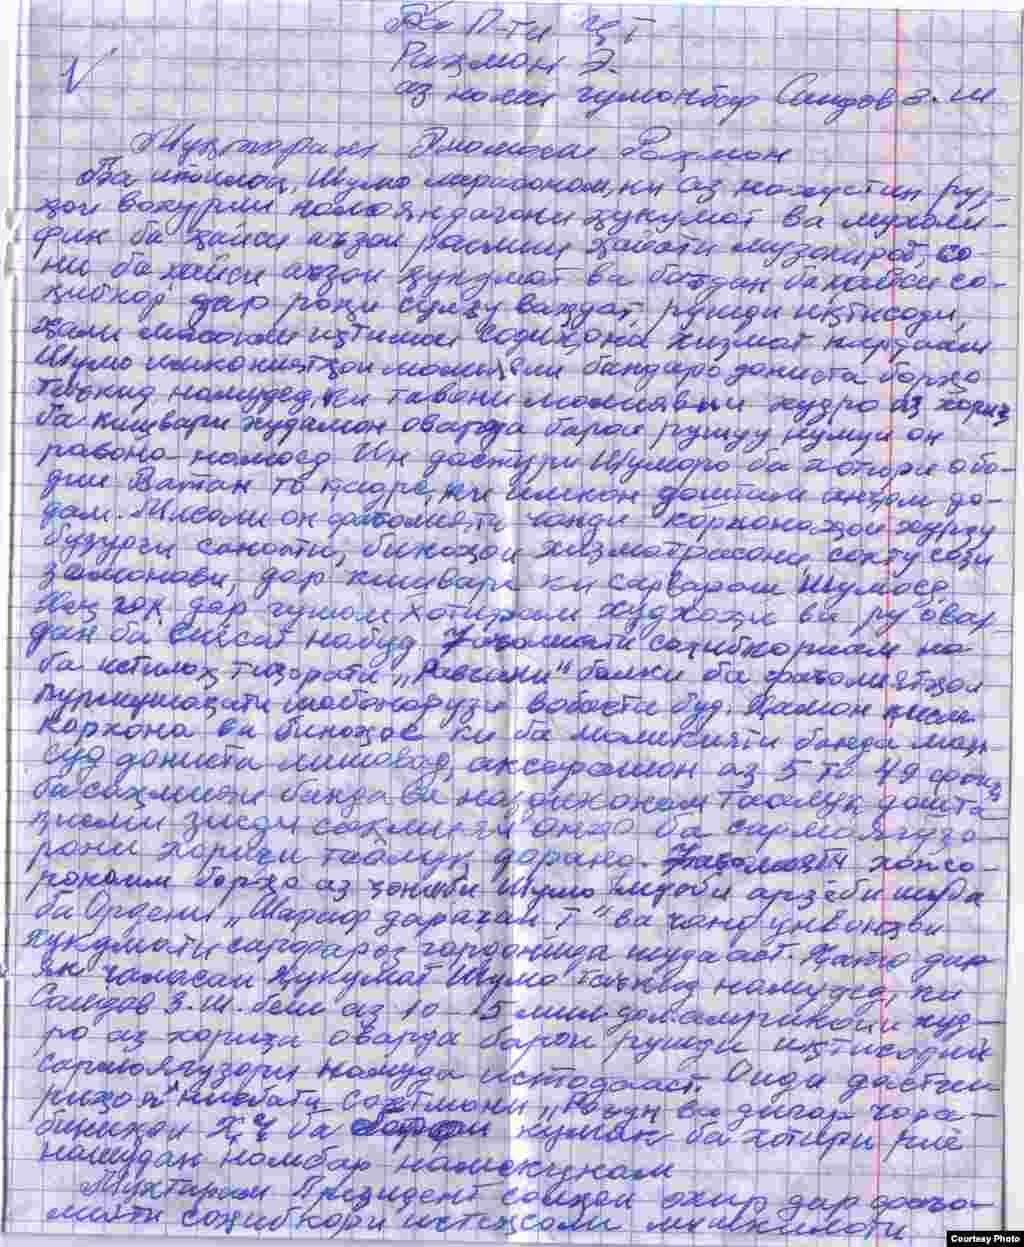 Ба П-ти ҶТ
Раҳмон Э.
аз номи гумонбар Саидов З.Ш
Муҳтарам Эмомали Раҳмон
Ба иттилои Шумо мерасонам, ки аз нахустин рӯ-
зҳои вохурии намояндагони ҳукумат ва мухоли-
фин ба ҳайси аъзои расмии ҳайати музокирот, со-
ни ба ҳайси аъзои ҳукумат ва баъдан ба ҳайси со-
ҳибкор дар роҳи сулҳу ваҳдат, рушди иқтисоди,
ҳали масоили иҷтимои содиқона хизмат кардаам
Шумо имкониятҳои молиявии бандаро дониста борҳо
таъкид намудед, ки тавони молиявии худро аз хориҷ
ба кишвари худамон оварда барои рушду нумуи он
равона намоед. Ин дастури Шуморо ба хотири обо-
дии Ватан то қадре, ки имкон доштам анҷом до-
дам. Мисоли он фаъолияти чанди корхонаҳои хурду
бузурги саноати, биноҳои хизматрасони, сохту сози
замонови, дар кишваре ки сарвараш Шумоед.
Ҳеҷ гоҳ дар гушаи хотирам худхоҳи ва рӯ овар-
дан ба сиёсат набуд. Фаъолияти соҳибкориам на
ба истилоҳ тиҷорати "Равғани" балки ба фаъолиятҳои
пурмашаққати шабонарузи вобаста буд. Ҳамон қисми
корхона ва биноҳое ки ба моликияти банда ман-
суб дониста мешавад, аксарашон аз 5 то 49 фоиз
ба саҳмияи банда ва наздиконам тааллуқ дошта
қисми зиёди саҳмияҳои онҳо ба сармоягузо-
рони хориҷи тааллуқ доранд. Фаъолияти хоксо-
ронаам борҳо аз ҷониби Шумо хуб арзёби шуда
ба Ордени "Шараф дараҷаи I" ва чанд унвонҳои
Ҳукумати сарфароз гардонида шудааст. Ҳатто дар
як ҷаласаи Ҳукумат Шумо таъкид намудед, ки
Саидов З.Ш. беш аз 10-15 млн. дол. амрикоии худ-
ро аз хориҷа оварда барои рушди иқтисодиёт
сармоягузори намуда истодааст. Оиди дастги-
риҳо нисбати сохтмони "Роғун" ва дигар чора-
биниҳои ҲҶ ба кумак ба хотири риё
нашудан номбар намекунам
Муҳтарам Президент солҳои охир дар фаъо-
лияти соҳибкори истеҳсоли мушкилоти
Courtesy Photo